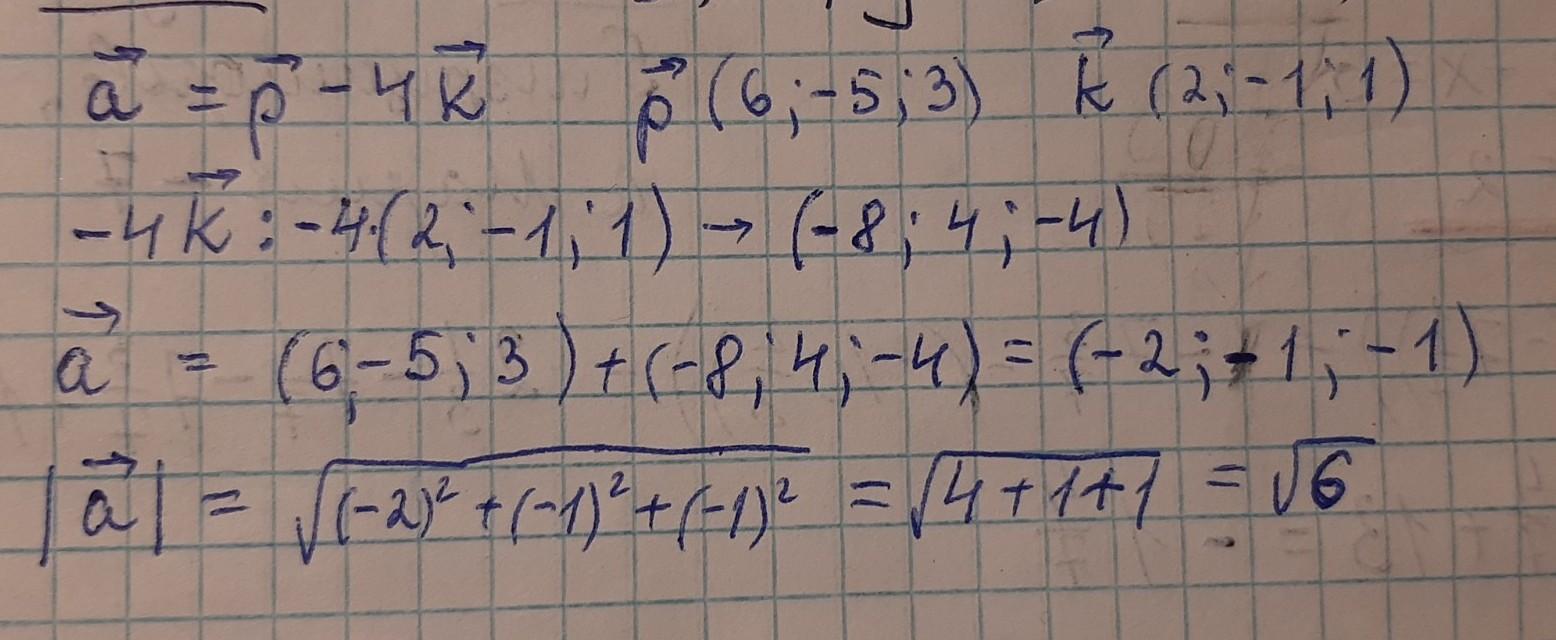 a⃗ = p⃗ - 4k⃗   p⃗ (6; -5; 3)   k⃗ (2; -1; 1)
-4k⃗ : -4·(2; -1; 1) → (-8; 4; -4)
a⃗ = (6; -5; 3) + (-8; 4; -4) = (-2; -1; -1)
|a⃗| = √((-2)² + (-1)² + (-1)²) = √(4+1+1) = √6